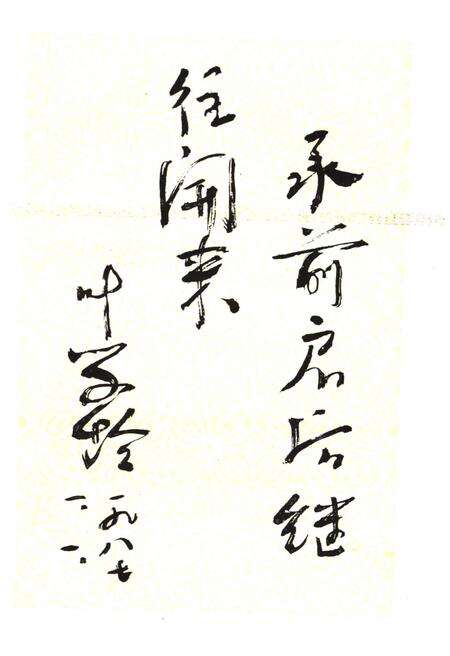 承前启后继
往開来
叶
一九八七
一.一.